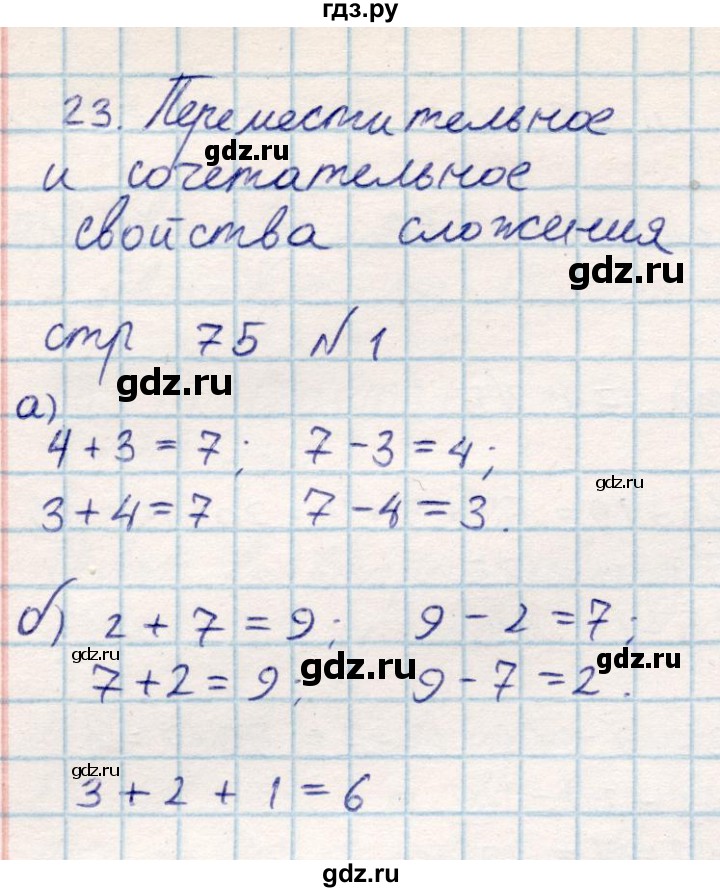 гдз.ру
23. Переместительное
gdz.ru
и сочетательное
свойства сложения
gdz.ru
стр 75 №1
gdz.ru
а)
4 + 3 = 7; 7 - 3 = 4;
gdz.ru
3 + 4 = 7 7 - 4 = 3.
б) 2 + 7 = 9; 9 - 2 = 7;
gdz.ru gdz.ru gdz.ru
7 + 2 = 9; 9 - 7 = 2.
gdz.ru
3 + 2 + 1 = 6
gdz.ru